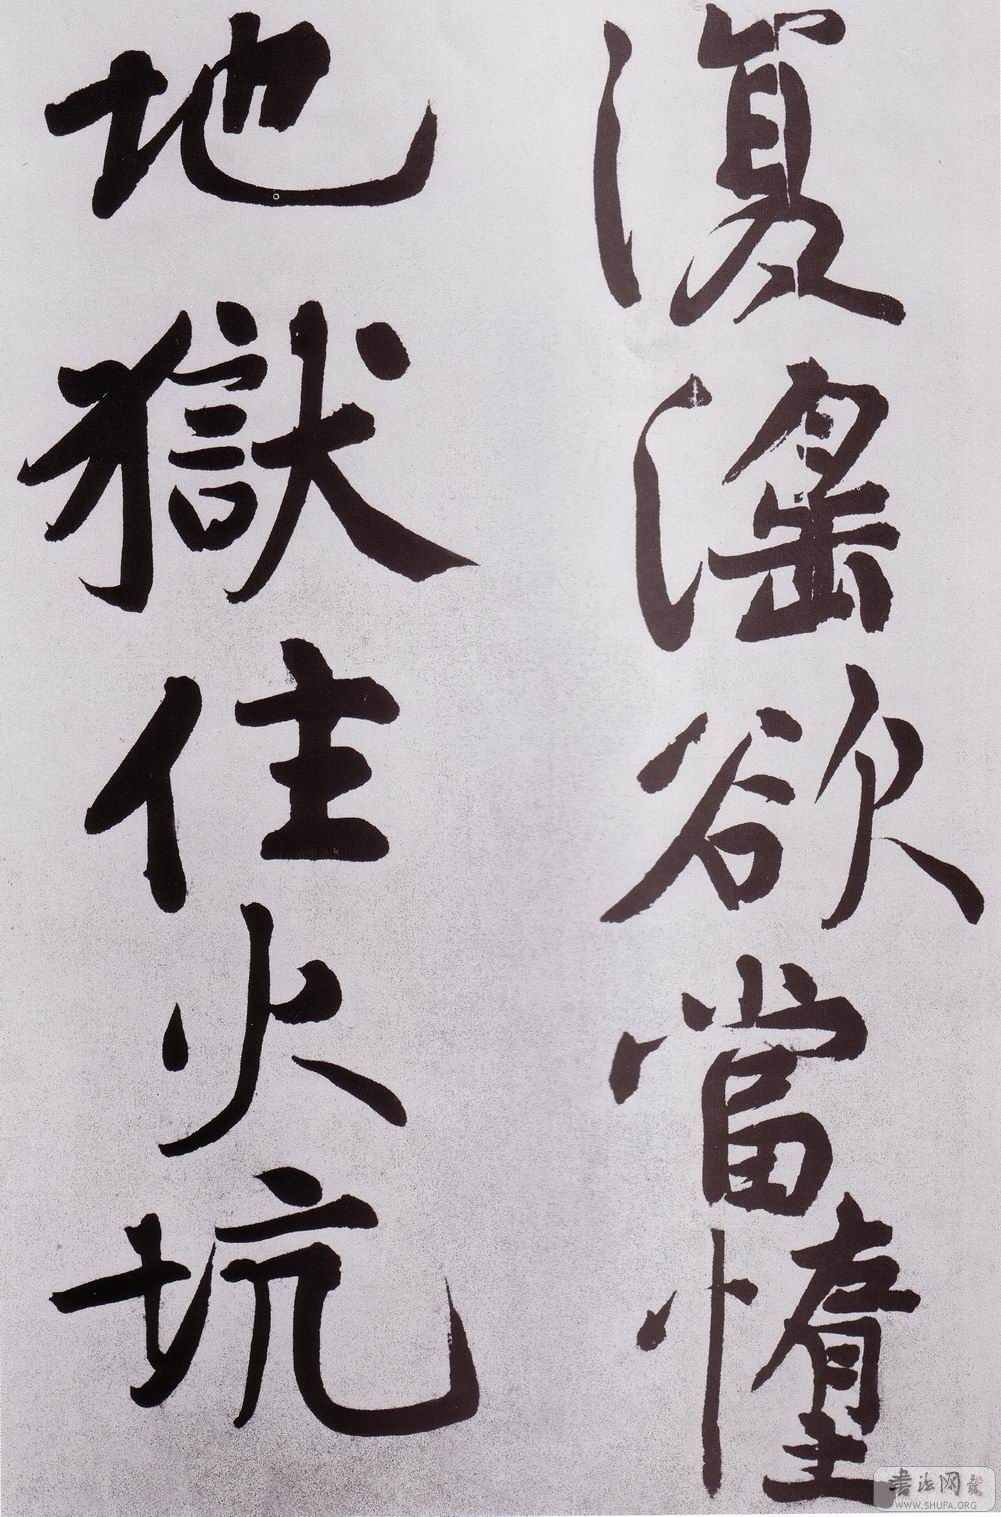 復滛欲當墮
地獄住火坑
書法网
WWW.SHUFA.ORG